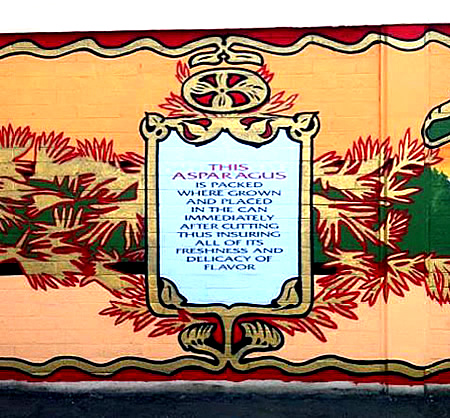 THIS
ASPARAGUS
IS PACKED
WHERE GROWN
AND PLACED
IN THE CAN
IMMEDIATELY
AFTER CUTTING
THUS INSURING
ALL OF ITS
FRESHNESS AND
DELICACY OF
FLAVOR